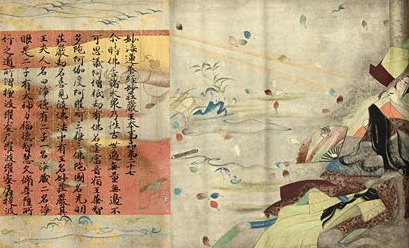 妙法蓮華經妙莊嚴王本事品第二十七
尒時佛告諸大衆乃往古世過無量無邊不
可思議阿僧祇劫有佛名雲雷音宿王華智
多陁阿伽度阿羅訶三藐三佛陁國名光明
莊嚴劫名喜見彼佛法中有王名妙莊嚴其
王夫人名曰淨德有二子一名淨藏二名淨
眼是二子有大神力福德智慧久修菩薩所
行之道所謂檀波羅蜜尸羅波羅蜜羼提波